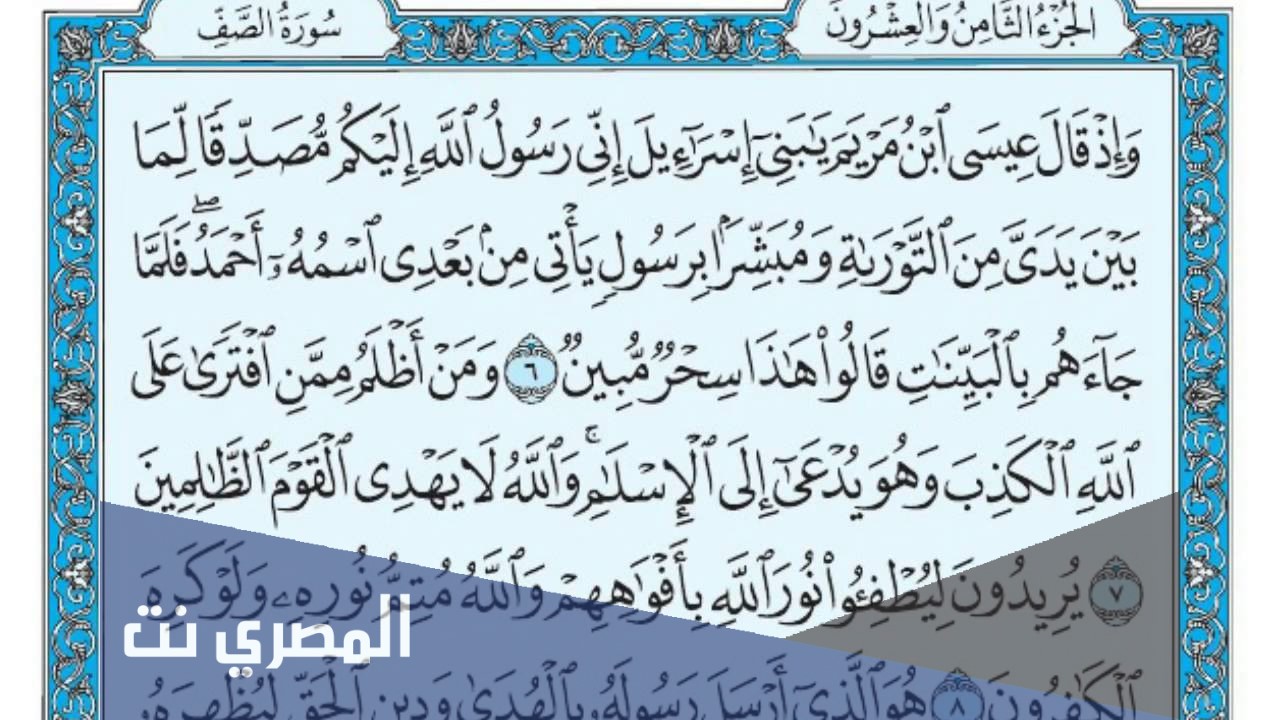 الجُزْءُ الثَّامِنُ وَالعِشْرُونَ
سُورَةُ الصَّفِّ
وَإِذْ قَالَ عِيسَى ٱبْنُ مَرْيَمَ يَٰبَنِىٓ إِسْرَٰٓءِيلَ إِنِّى رَسُولُ ٱللَّهِ إِلَيْكُم مُّصَدِّقًا لِّمَا
بَيْنَ يَدَىَّ مِنَ ٱلتَّوْرَىٰةِ وَمُبَشِّرًۢا بِرَسُولٍ يَأْتِى مِنۢ بَعْدِى ٱسْمُهُۥٓ أَحْمَدُۖ فَلَمَّا
جَآءَهُم بِٱلْبَيِّنَٰتِ قَالُوا۟ هَٰذَا سِحْرٌ مُّبِينٌ ٦ وَمَنْ أَظْلَمُ مِمَّنِ ٱفْتَرَىٰ عَلَى
ٱللَّهِ ٱلْكَذِبَ وَهُوَ يُدْعَىٰٓ إِلَى ٱلْإِسْلَٰمِۚ وَٱللَّهُ لَا يَهْدِى ٱلْقَوْمَ ٱلظَّٰلِمِينَ
٧ يُرِيدُونَ لِيُطْفِـُٔوا۟ نُورَ ٱللَّهِ بِأَفْوَٰهِهِمْ وَٱللَّهُ مُتِمُّ نُورِهِۦ وَلَوْ كَرِهَ
المصري نت
ٱلْكَٰفِرُونَ ٨ هُوَ ٱلَّذِىٓ أَرْسَلَ رَسُولَهُۥ بِٱلْهُدَىٰ وَدِينِ ٱلْحَقِّ لِيُظْهِرَهُۥ